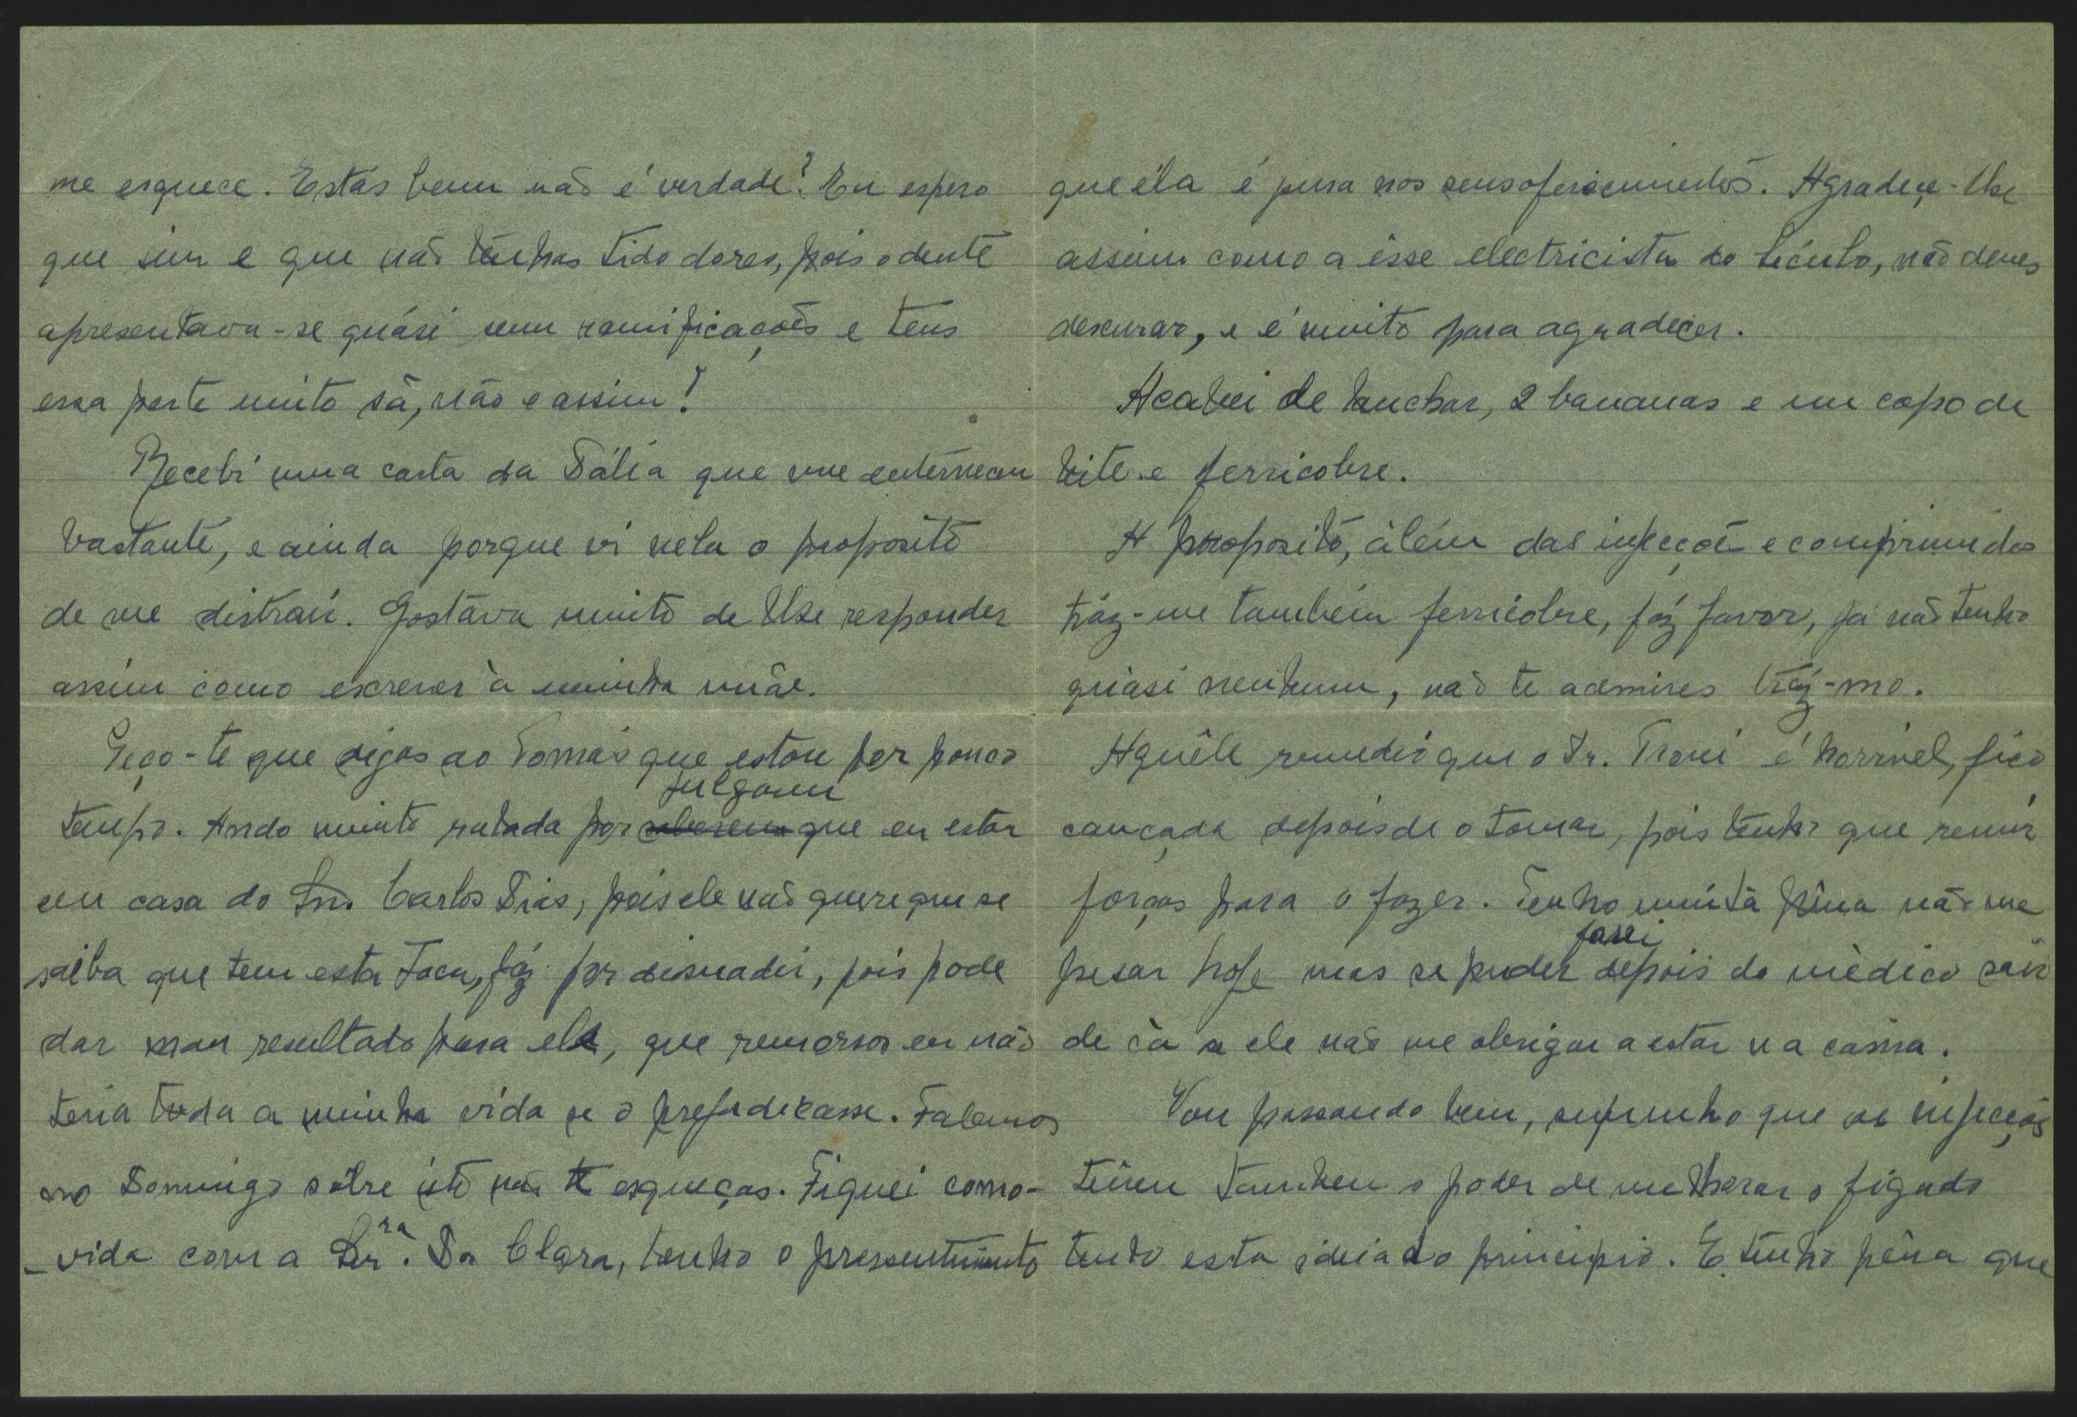 me esquece. Estás bem não é verdade? Eu espero
que sim e que não tenhas tido dores, pois o dente
apresentava-se quási sem ramificações e tens
essa parte muito sã, não é assim?
Recebi uma carta da Dália que me enterneceu
bastante, e ainda porque vi nela o proposito
de me distraír. Gostava muito de lhe responder
assim como escrever à minha mãe.
Peço-te que digas ao Tomás que estou por pouco
tempo. Ando muito ralada por julgarem que eu estar
em casa do Snr. Carlos Dias, pois ele não quere que se
saiba que tem esta Toca, fáz por disuadir, pois pode
dar mau resultado para ele, que remorsos eu não
teria toda a minha vida se o prejudicasse. Falamos
no Domingo sôbre isto não te esqueças. Fiquei como-
-vida com a Snrª. Da Clara, tenho o pressentimento
que éla é pura nos seus oferecimentos. Agradeçe-lhe
assim como a êsse electricista do Século, não deves
descurar, e é muito para agradecer.
Acabei de lanchar, 2 bananas e um copo de
leite e ferricobre.
A proposito, além das injecções e comprimidos
tráz-me também ferricobre, fáz favor, já não tenho
quási nenhum, não te admires tráz-mo.
Aquêle remedio que o Dr. Troni é horrivel, fico
cançada depois de o tomar, pois tenho que reunir
forças para o fazer. Tenho muita pêna não me
pesar hoje mas se puder farei depois do mèdico sair
de cá se ele não me obrigar a estar na cama.
Vou passando bem, suponho que as injecções
têem tambem o poder de melhorar o figado
tendo esta ideia do principio. E tenho pêna que